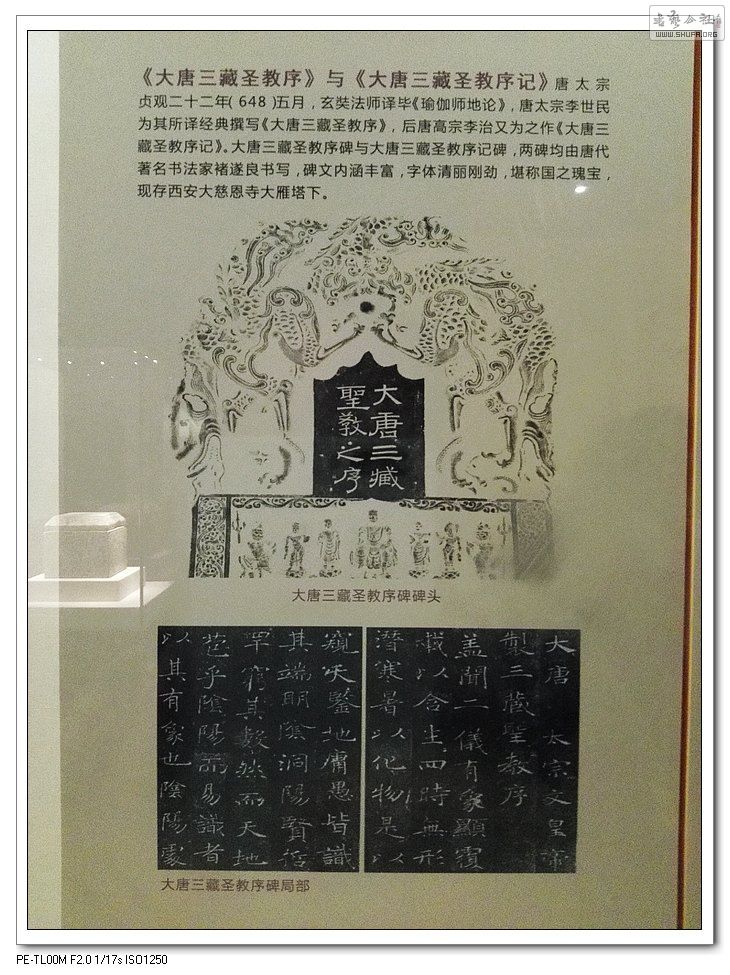 书艺公社
WWW.SHUFA.ORG
《大唐三藏圣教序》与《大唐三藏圣教序记》唐太宗
贞观二十二年(648)五月，玄奘法师译毕《瑜伽师地论》，唐太宗李世民
为其所译经典撰写《大唐三藏圣教序》，后唐高宗李治又为之作《大唐三
藏圣教序记》。大唐三藏圣教序碑与大唐三藏圣教序记碑，两碑均由唐代
著名书法家褚遂良书写，碑文内涵丰富，字体清丽刚劲，堪称国之瑰宝，
现存西安大慈恩寺大雁塔下。
大唐三藏
聖教之序
大唐三藏圣教序碑碑头
大唐 太宗文皇帝
製三藏聖教序
盖聞二儀有象顯覆
載以含生四時無形
潛寒暑以化物是以
窺天鑒地庸愚皆識
其端明陰洞陽賢哲
罕窮其數然而天地
苞乎陰陽而易識者
以其有象也陰陽處
大唐三藏圣教序碑局部
PE-TL00M F2.0 1/17s ISO1250